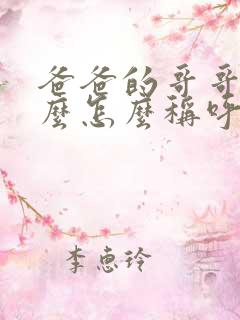 爸爸的哥哥
麼怎麼稱呼
李惠玲